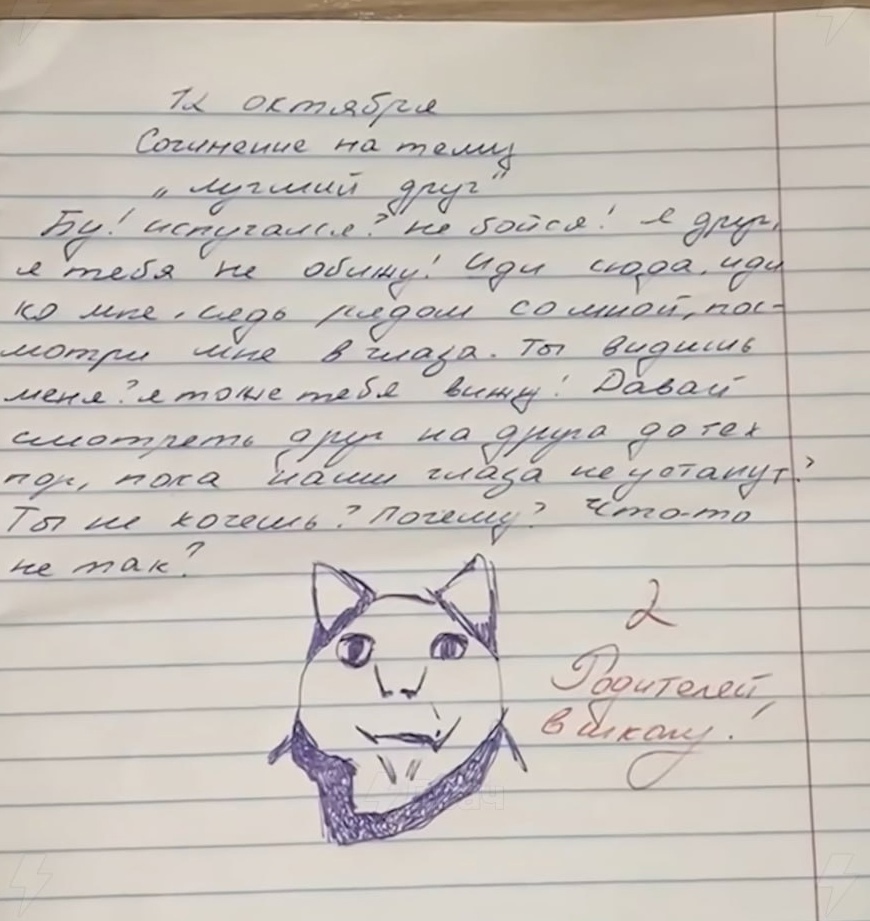 12 октября
Сочинение на тему
„лучший друг"
Бу! испугался? не бойся! я друг,
я тебя не обижу! иди сюда, иди
ко мне, сядь рядом со мной, пос-
мотри мне в глаза. Ты видишь
меня? я тоже тебя вижу! Давай
смотреть друг на друга до тех
пор, пока наши глаза не устанут?
Ты не хочешь? Почему? Что-то
не так?
2
Родителей
в школу!